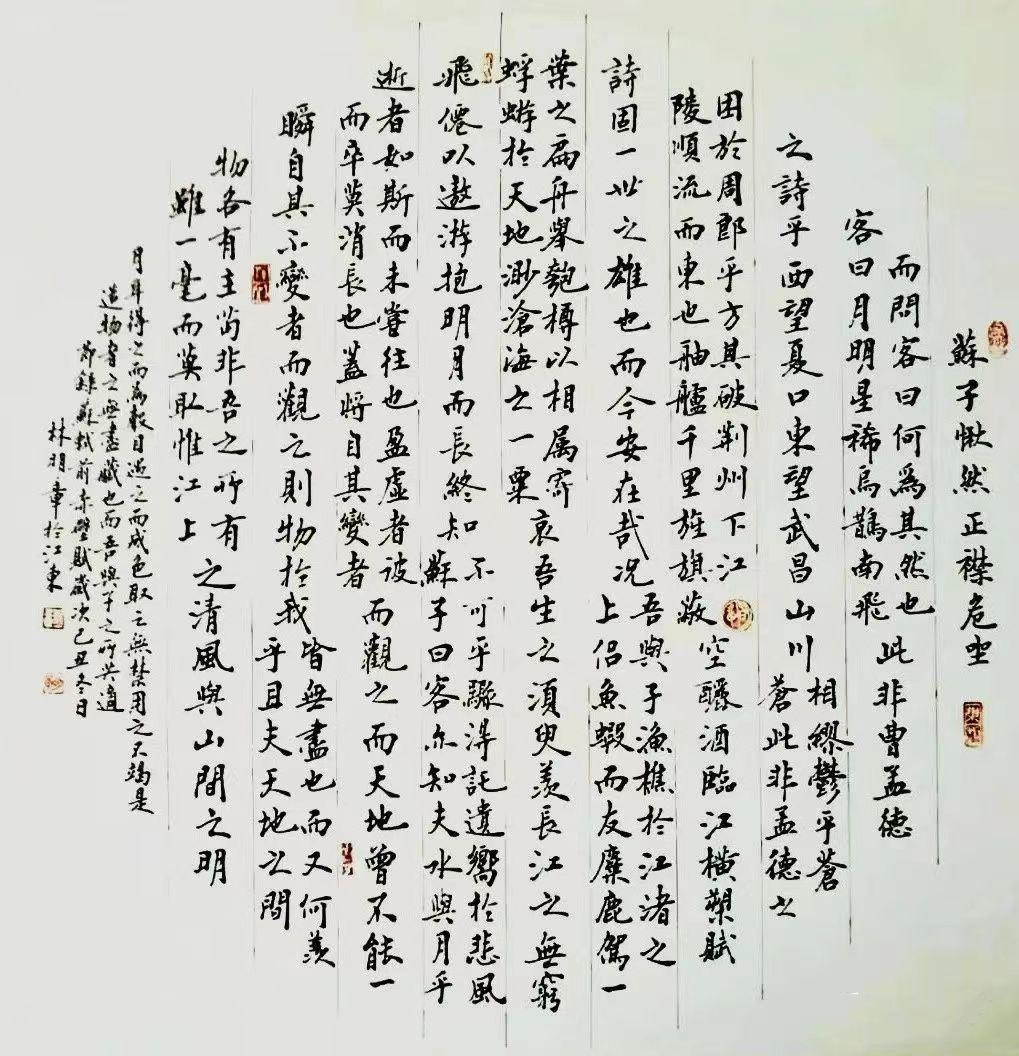 蘇子愀然正襟危坐
而問客曰何為其然也
客曰月明星稀烏鵲南飛
此非曹孟德
之詩乎西望夏口東望武昌山川
相繆鬱乎蒼
蒼此非孟德之
困於周郎乎方其破荊州下江
陵順流而東也舳艫千里旌旗蔽
空釃酒臨江橫槊賦
詩固一世之雄也而今安在哉况
吾與子漁樵於江渚之
上侶魚蝦而友麋鹿駕一
葉之扁舟舉匏樽以相属寄
蜉蝣於天地渺滄海之一粟
哀吾生之須臾羨長江之無窮
飛僊以遨游抱明月而長終知
不可乎驟得託遺嚮於悲風
蘇子曰客亦知夫水與月乎
逝者如斯而未嘗往也盈虛者彼
而卒莫消長也蓋將自其變者
而觀之而天地曾不能一
瞬自其不變者而觀之則物於我
皆無盡也而又何羨
乎且夫天地之間
物各有主苟非吾之所有
雖一毫而莫取惟江上
之清風與山間之明
月耳得之而為聲目遇之而成色取之無禁用之不竭是
造物者之無盡藏也而吾與子之所共適
節錄蘇軾前赤壁賦歲次己丑冬日
林明章於江東